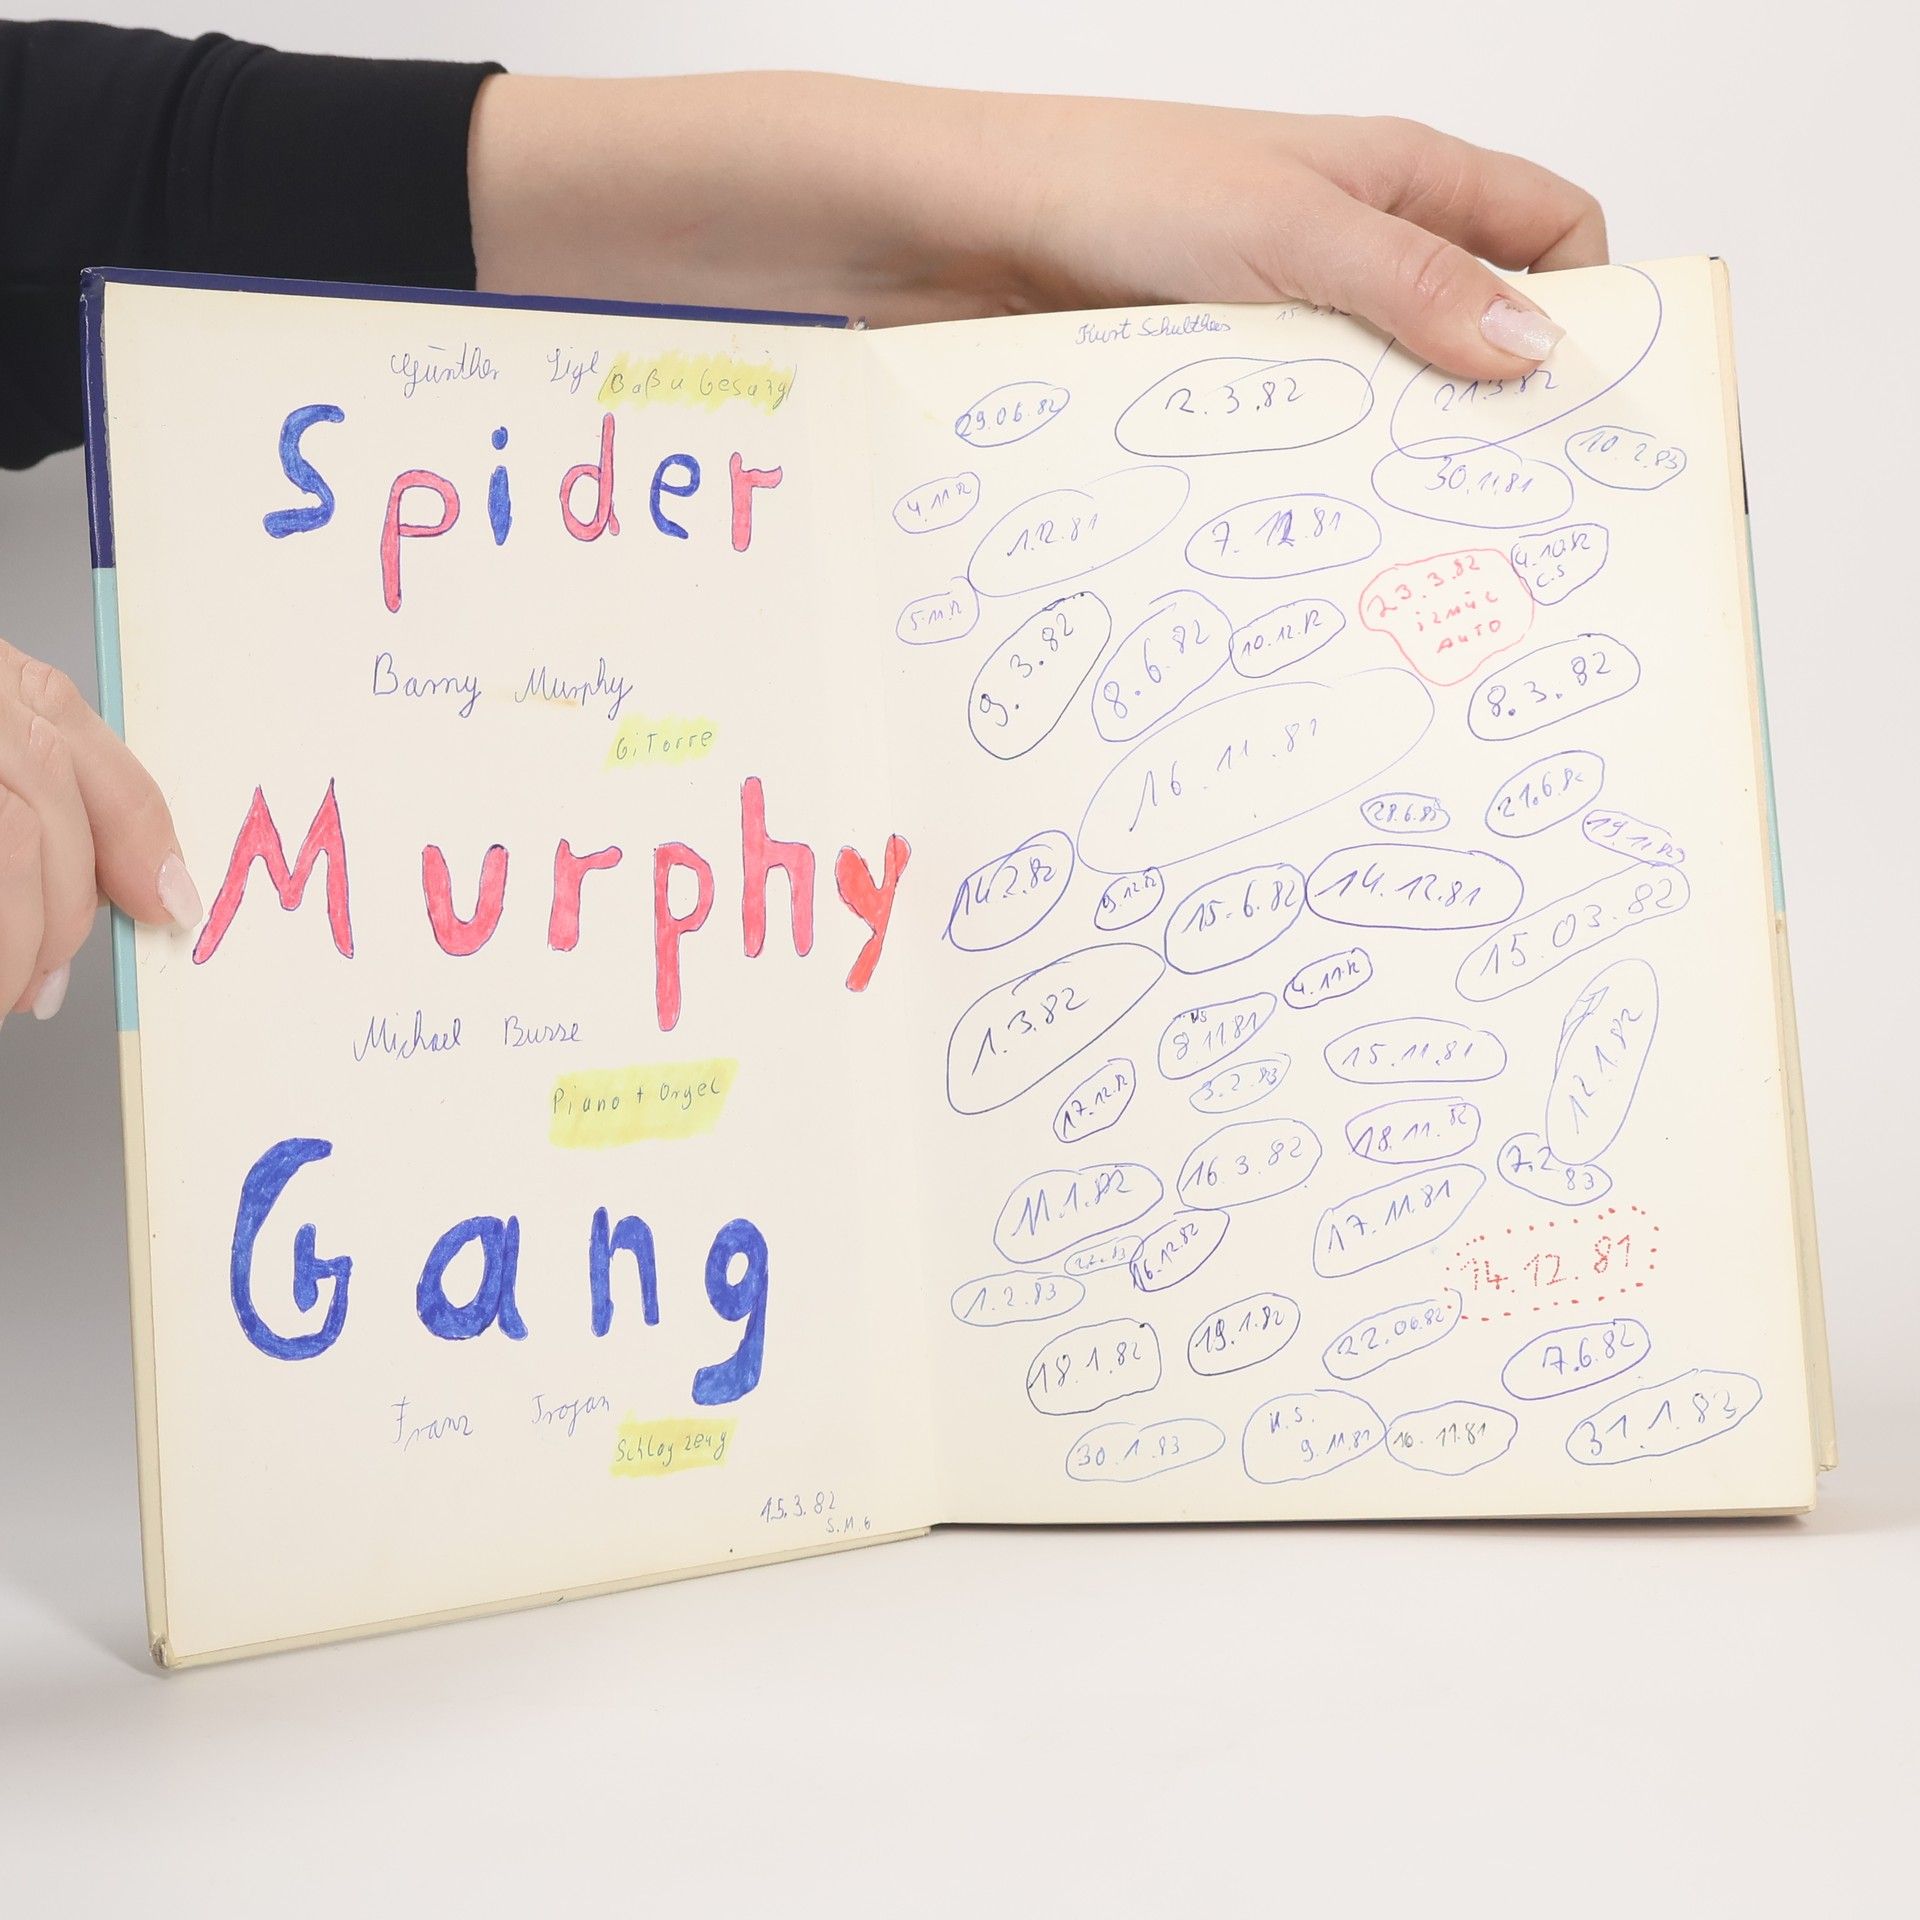 Günther Sigl (Baß u Gesang)
Spider
Barny Murphy
Gitorre
Murphy
Michael Busse
Piano + Orgel
Gang
Franz Trojan
Schlagzeug
15.3.82
S.M.G
Kurt Schultheis
29.06.82
2.3.82
21.3.82
10.2.83
4.11.82
1.12.81
7.12.81
30.11.81
4.10.82
C.S
5.11.82
9.3.82
8.6.82
10.12.82
23.3.82
AUTO
8.3.82
16.11.81
28.6.83
21.6.82
19.11.82
14.2.83
9.12.82
15.6.82
14.12.81
15.03.82
1.3.82
8.11.81
4.11.82
15.11.81
12.1.82
17.12.82
3.2.83
18.11.82
11.1.82
16.3.82
17.11.81
7.2
83
2.2.83
16.12.82
14.12.81
1.2.83
18.1.82
19.1.82
22.06.82
7.6.82
30.1.83
K.S.
9.11.81
10.11.81
31.1.83